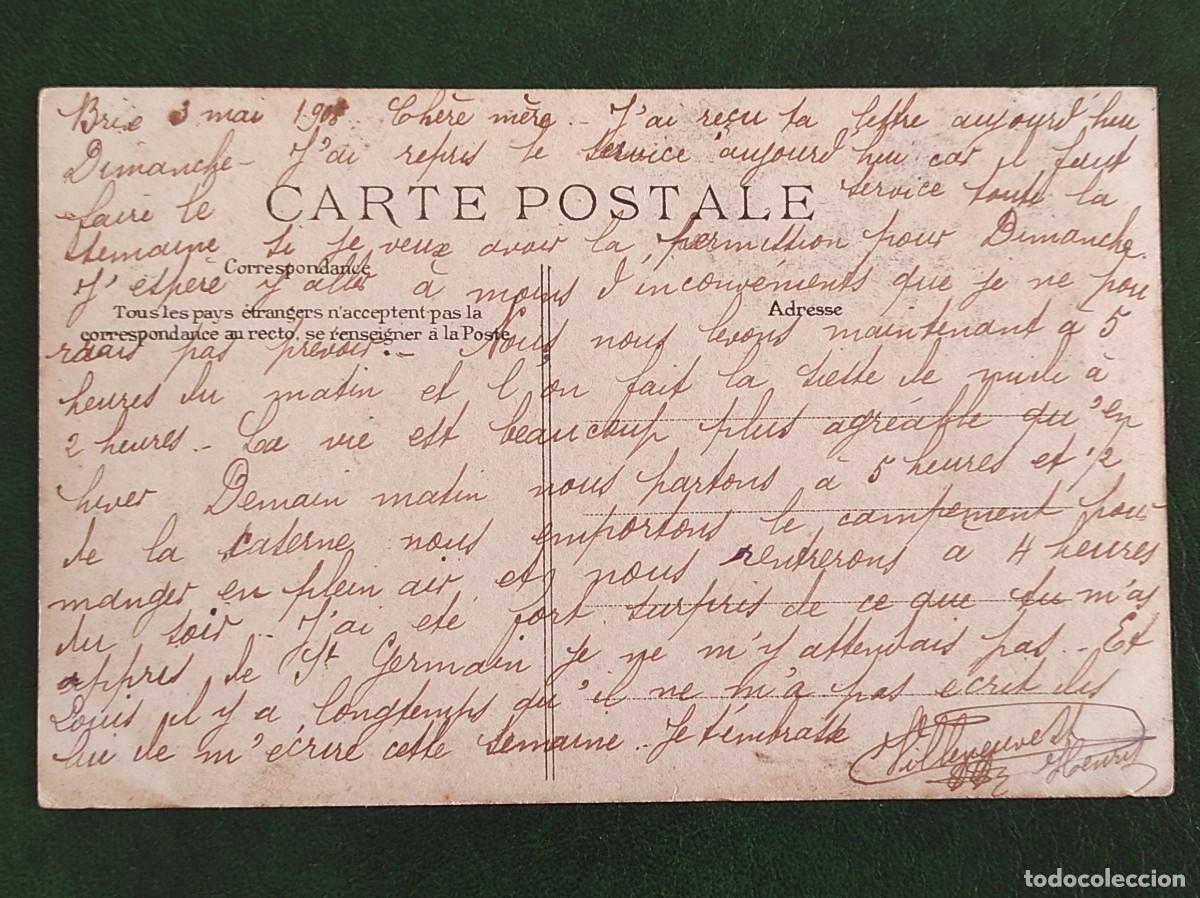 Brix 3 mai 1908. Chère mère - J'ai reçu ta lettre aujourd'heu
Dimanche - J'ai repris le service aujourd heu car il faut
faire le service toute la
CARTE POSTALE
semaine si je veux avoir la permission pour Dimanche.
Correspondance
J'espère y aller à moins d'inconvénients que je ne pou
Tous les pays étrangers n'acceptent pas la
correspondance au recto, se renseigner à la Poste
Adresse
rrais pas prevoir.- Nous nous levons maintenant à 5
heures du matin et l'on fait la sieste de midi à
2 heures - La vie est beaucoup plus agréable qu'en
hiver Demain matin nous partons à 5 heures et 1/2
de la caserne nous emportons le campement pour
manger en plein air et nous rentrerons à 4 heures
du soir - J'ai eté fort surpris de ce que tu m'as
appris de St Germain je ne m'y attendais pas - Et
Louis il y a longtemps qu'il ne m'a pas ecrit dis
lui de m'écrire cette semaine.. Je t'embrasse
Villeneuve Henri
todocoleccion